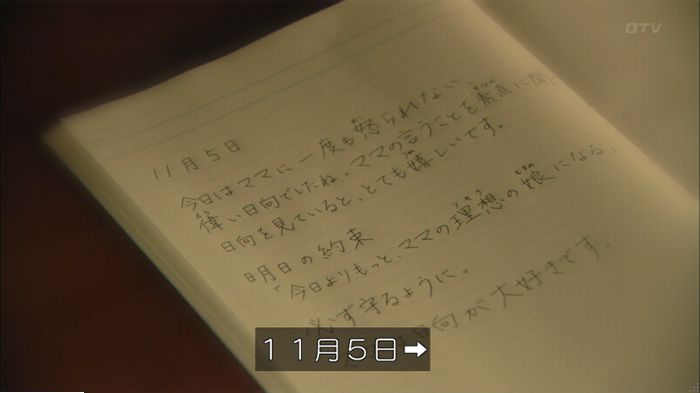 OTV
11月5日
今日はママに一度も怒られない
偉い日向でしたね。ママの言うことを素直に聞
日向を見ていると、とても嬉しいです。
明日の約束
「今日よりもっと、ママの理想の娘になる」
必ず守るように。
日向が大好きです。
11月5日➡